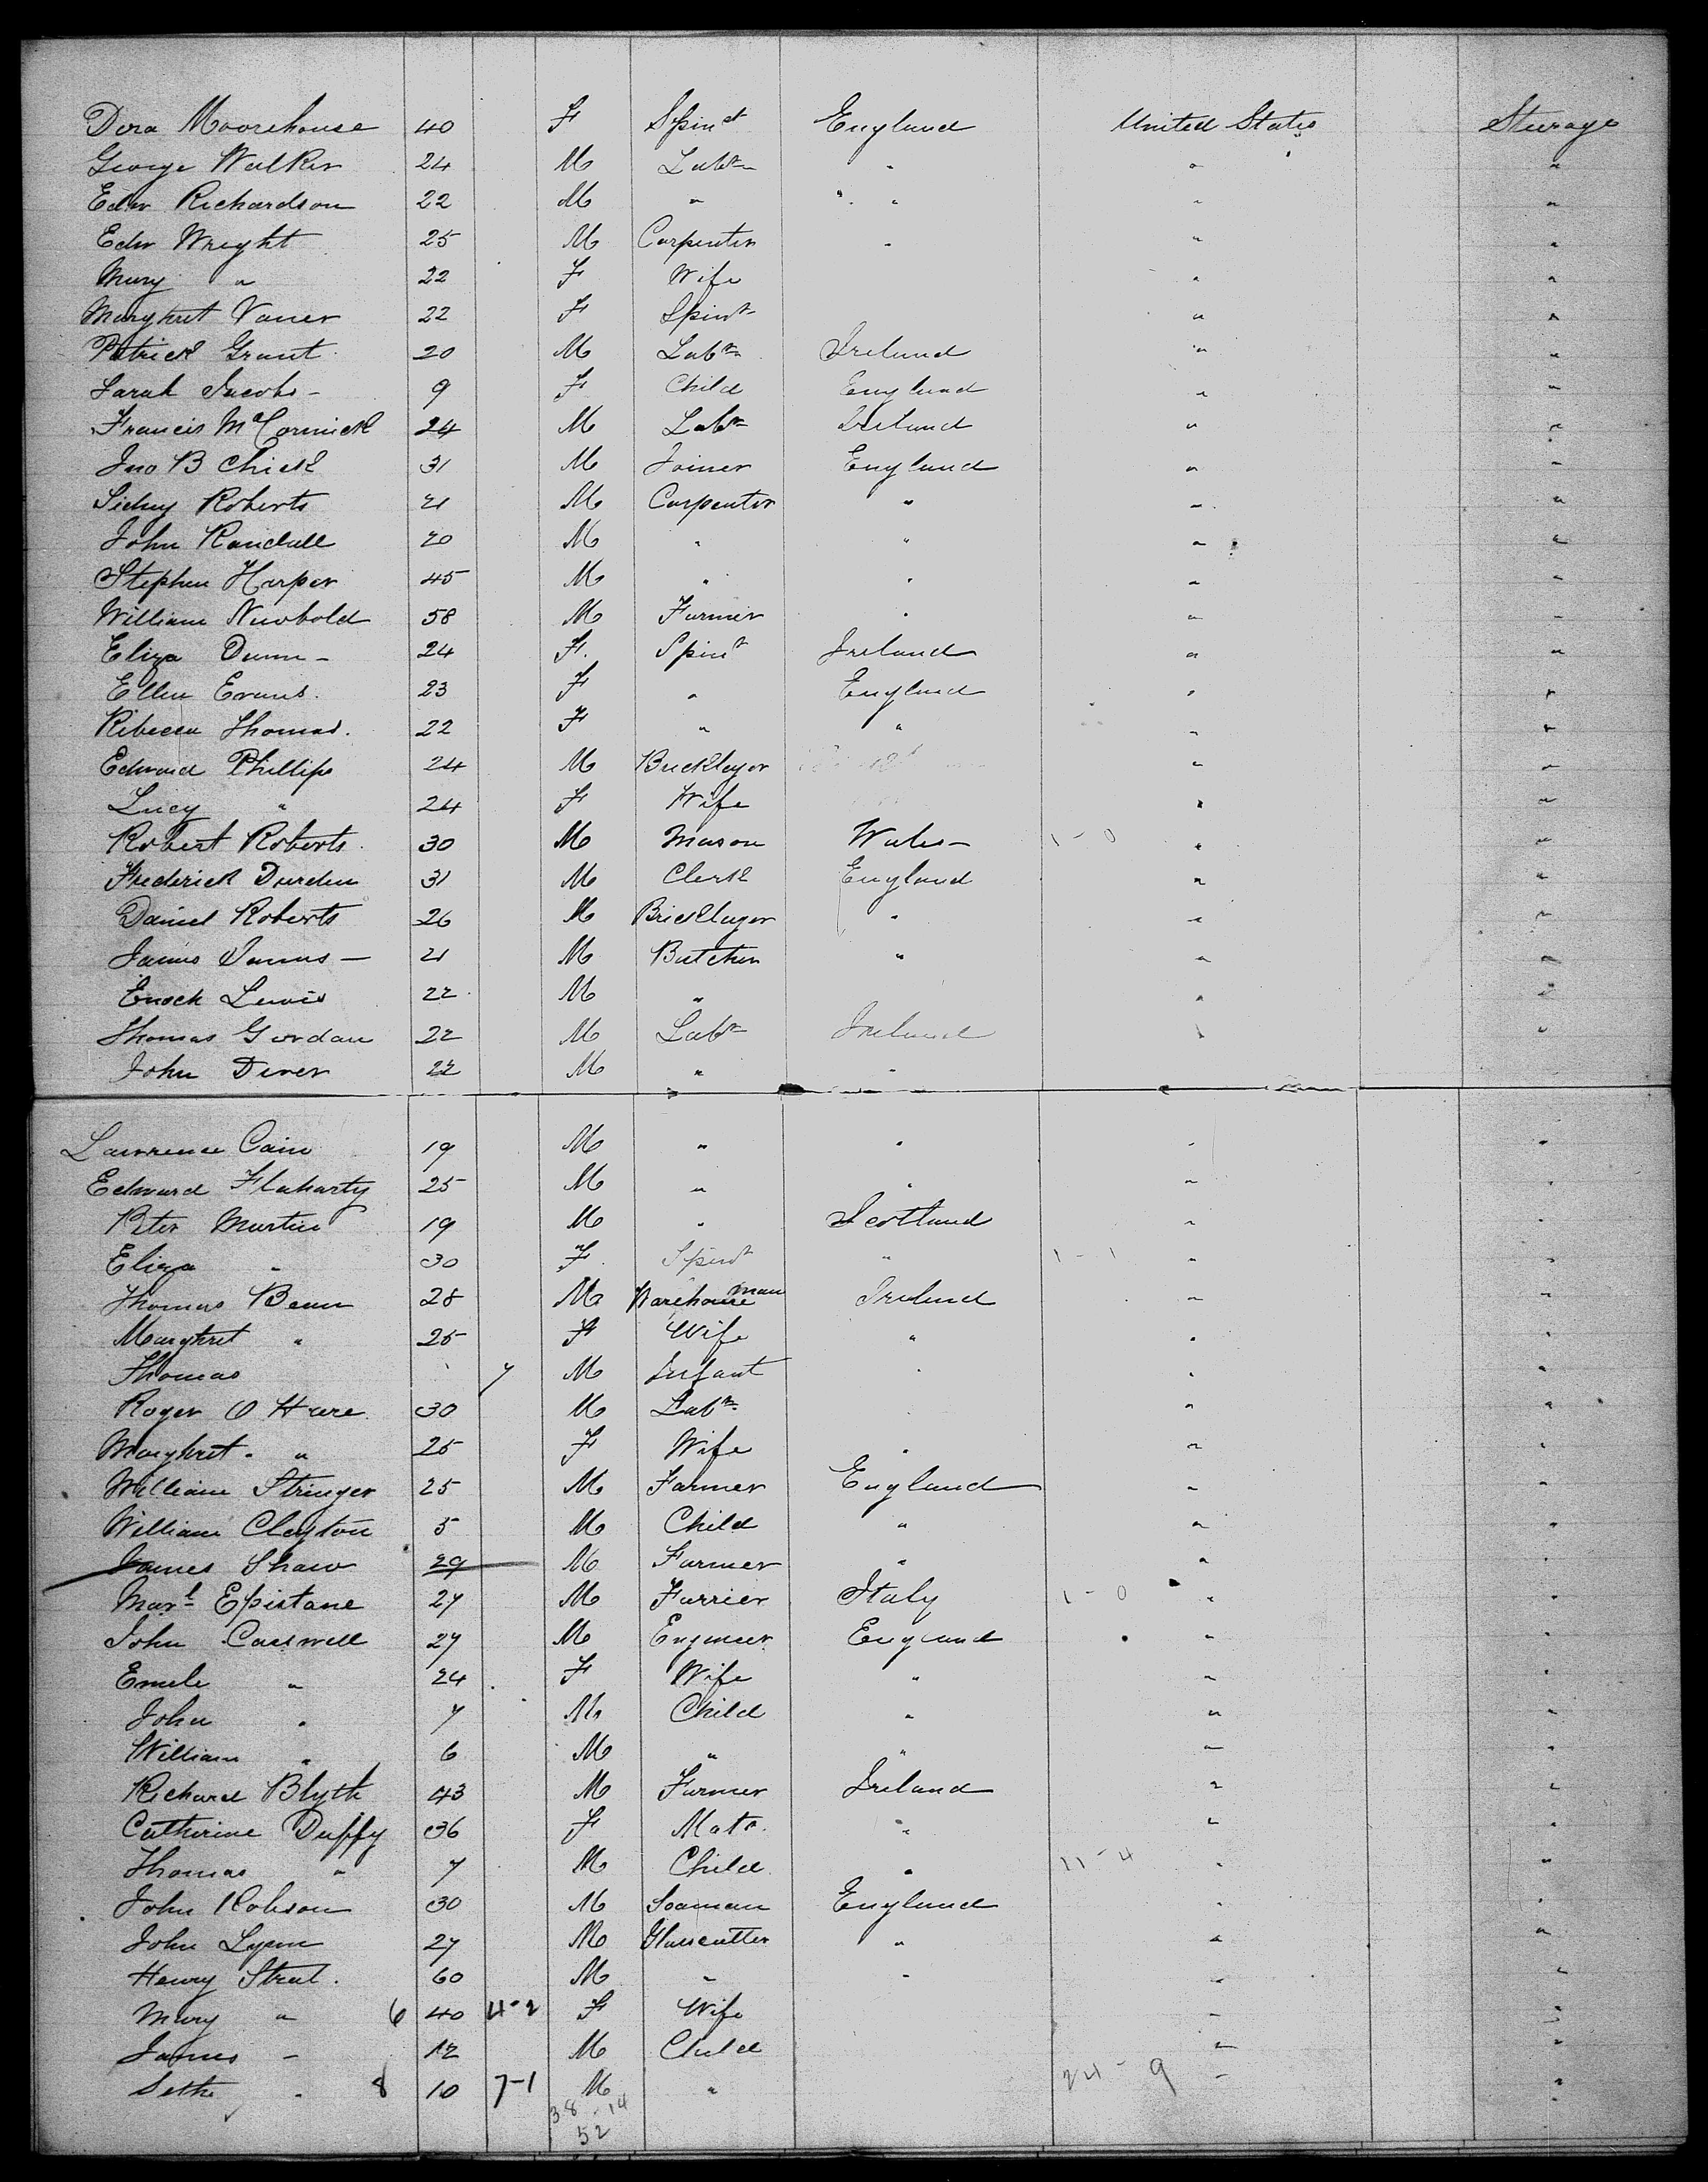 Dora Moorehouse 40 F Spinst England United States Steerage
George Walker 24 M Labr " " "
Edw Richardson 22 M " " " "
Edw Wright 25 M Carpenter " " "
Mary " 22 F Wife " "
Marghret Vaner 22 F Spinst " "
Patrick Grant 20 M Labr Ireland " "
Sarah Jacobs - 9 F Child England " "
Francis McCormick 24 M Labr Ireland " "
Jno B Chick 31 M Joiner England " "
Sidney Roberts 21 M Carpenter " " "
John Randall 20 M " " " "
Stephen Harper 45 M " " " "
William Newbold 58 M Farmer " " "
Eliza Dunn - 24 F. Spinst Ireland " "
Ellen Evans. 23 F " England " "
Rebecca Thomas. 22 F " " " "
Edward Phillips 24 M Bricklayer " "
Lucy " 24 F Wife " "
Robert Roberts. 30 M Mason Wales - 1 - 0 " "
Frederick Durden 31 M Clerk England " "
Daniel Roberts 26 M Bricklayer " " "
James James - 21 M Butcher " " "
Enoch Lewis 22 M " " "
Thomas Gordan 22 M Labr Ireland " "
John Dever 22 M " "
Lawrence Cain 19 M " " " "
Edward Flaharty 25 M " " " "
Peter Martin 19 M " Scotland " "
Eliza " 30 F. Spinst " 1 - 1 " "
Thomas Bean 28 M Warehouseman Ireland " "
Marghret " 25 F Wife " " "
Thomas 7 M Infant " " "
Roger O Hare 30 M Labr " " "
Marghret. " 25 F Wife " " "
William Stringer 25 M Farmer England " "
William Clayton 5 M Child " " "
James Shaw 29 M Farmer " " "
Marl Epistane 27 M Farrier Italy 1 - 0 " "
John Casswell 27 M Engineer England " "
Emele " 24 F Wife " " "
John " 7 M Child " " "
William " 6 M " " " "
Richard Blyth 43 M Farmer Ireland " "
Catherine Duffy 36 F Matr. " " "
Thomas " 7 M Child " 11 - 4 " "
John Robson 30 M Seaman England " "
John Lyon 27 M Glasscutter " " "
Henry Strut. 60 M " " " "
Mary " 6 40 4-2 F Wife " "
James - 12 M Child " "
Seth " 8 10 7-1 M " 24 - 9 " "
38 - 14
52